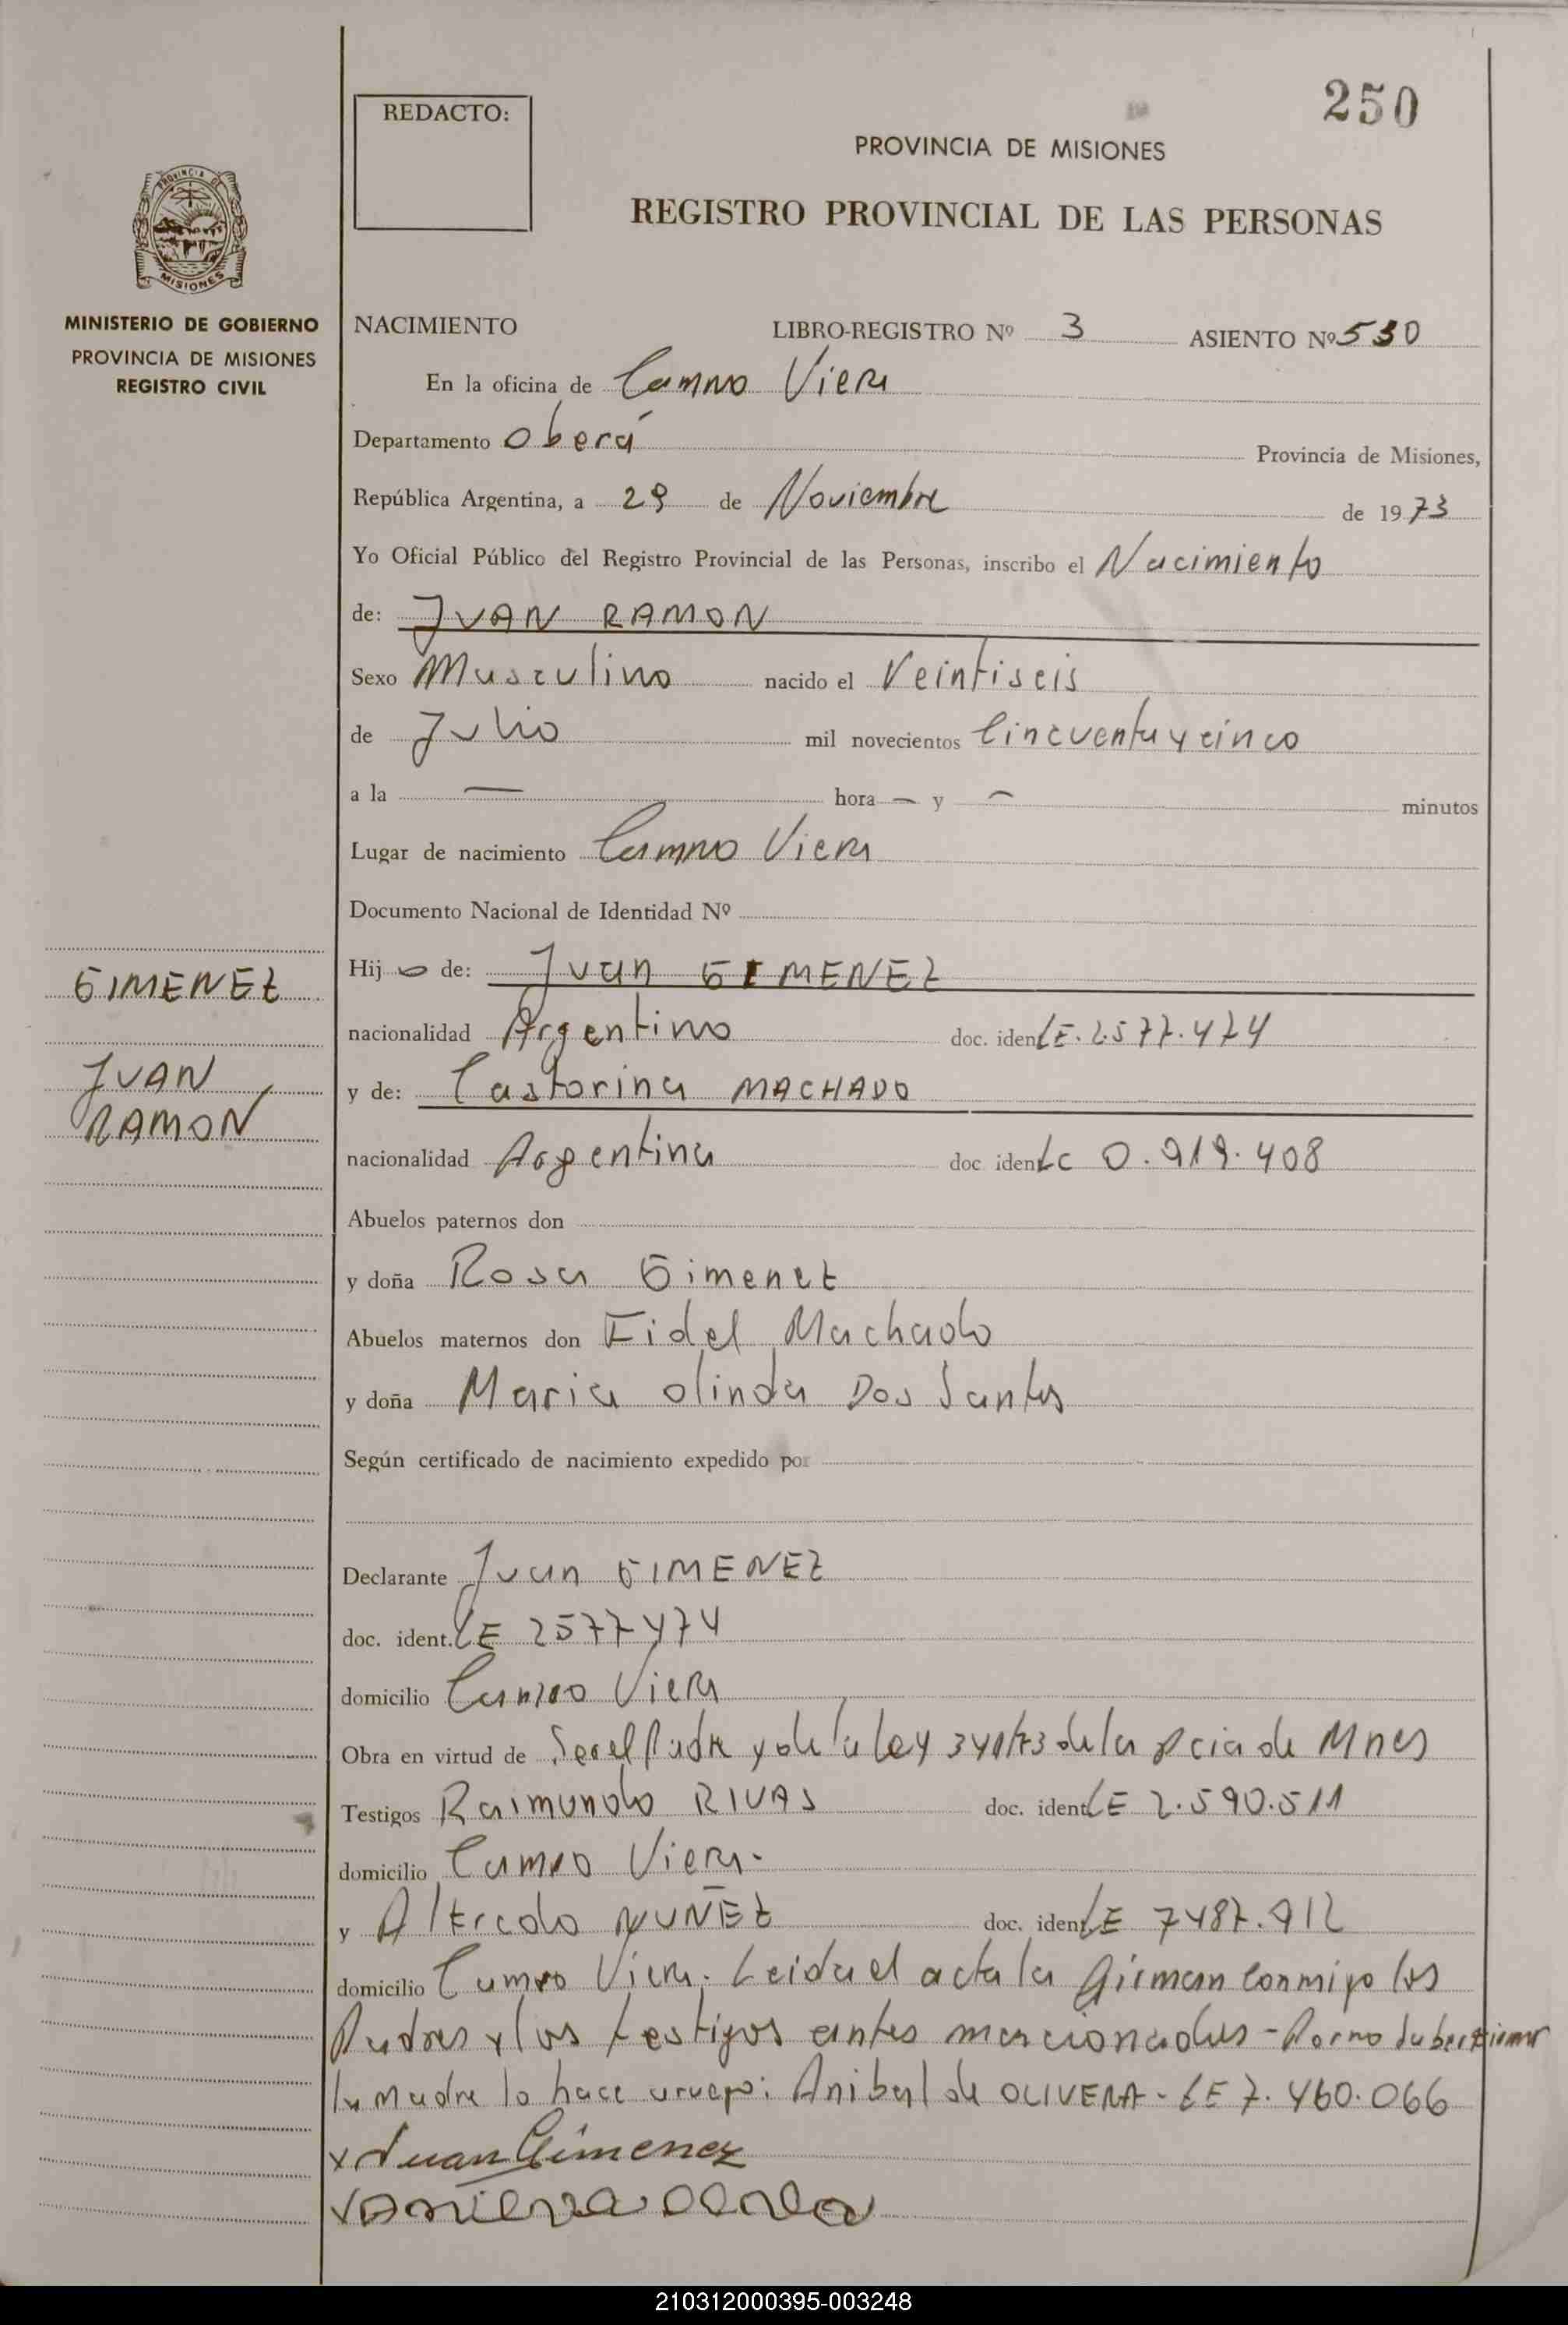 250
REDACTO:
PROVINCIA DE MISIONES
REGISTRO PROVINCIAL DE LAS PERSONAS
PROVINCIA DE
MISIONES
MINISTERIO DE GOBIERNO
PROVINCIA DE MISIONES
REGISTRO CIVIL
NACIMIENTO LIBRO-REGISTRO Nº 3 ASIENTO Nº 530
En la oficina de Campo Viera
Departamento Oberá Provincia de Misiones,
República Argentina, a 29 de Noviembre de 1973
Yo Oficial Público del Registro Provincial de las Personas, inscribo el Nacimiento
de: JUAN RAMON
Sexo Musculino nacido el Veintiseis
de Julio mil novecientos Cincuenta y cinco
a la — hora — y — minutos
Lugar de nacimiento Campo Viera
Documento Nacional de Identidad Nº
Hijo de: Juan GIMENEZ
GIMENEZ
nacionalidad Argentino doc. iden LE. 2.577.474
JUAN
y de: Castorina MACHADO
RAMON
nacionalidad Argentina doc iden LC 0.919.408
Abuelos paternos don
y doña Rosa Gimenez
Abuelos maternos don Fidel Machado
y doña Maria Olinda Dos Santos
Según certificado de nacimiento expedido por
Declarante Juan GIMENEZ
doc. ident. LE 2577474
domicilio Campo Viera
Obra en virtud de Ser el Padre y de la Ley 340/73 de la Pcia de Mnes
Testigos Raimundo RIVAS doc. ident LE 2.590.511
domicilio Campo Viera.
y Alfredo NUÑEZ doc. iden LE 7487.912
domicilio Campo Viera. Leida el acta la firman conmigo los
Padres y los testigos antes mencionados - Por no saber firmar
la Madre lo hace a ruego: Anibal de OLIVERA - LE 7.460.066
x Juan Gimenez
210312000395-003248